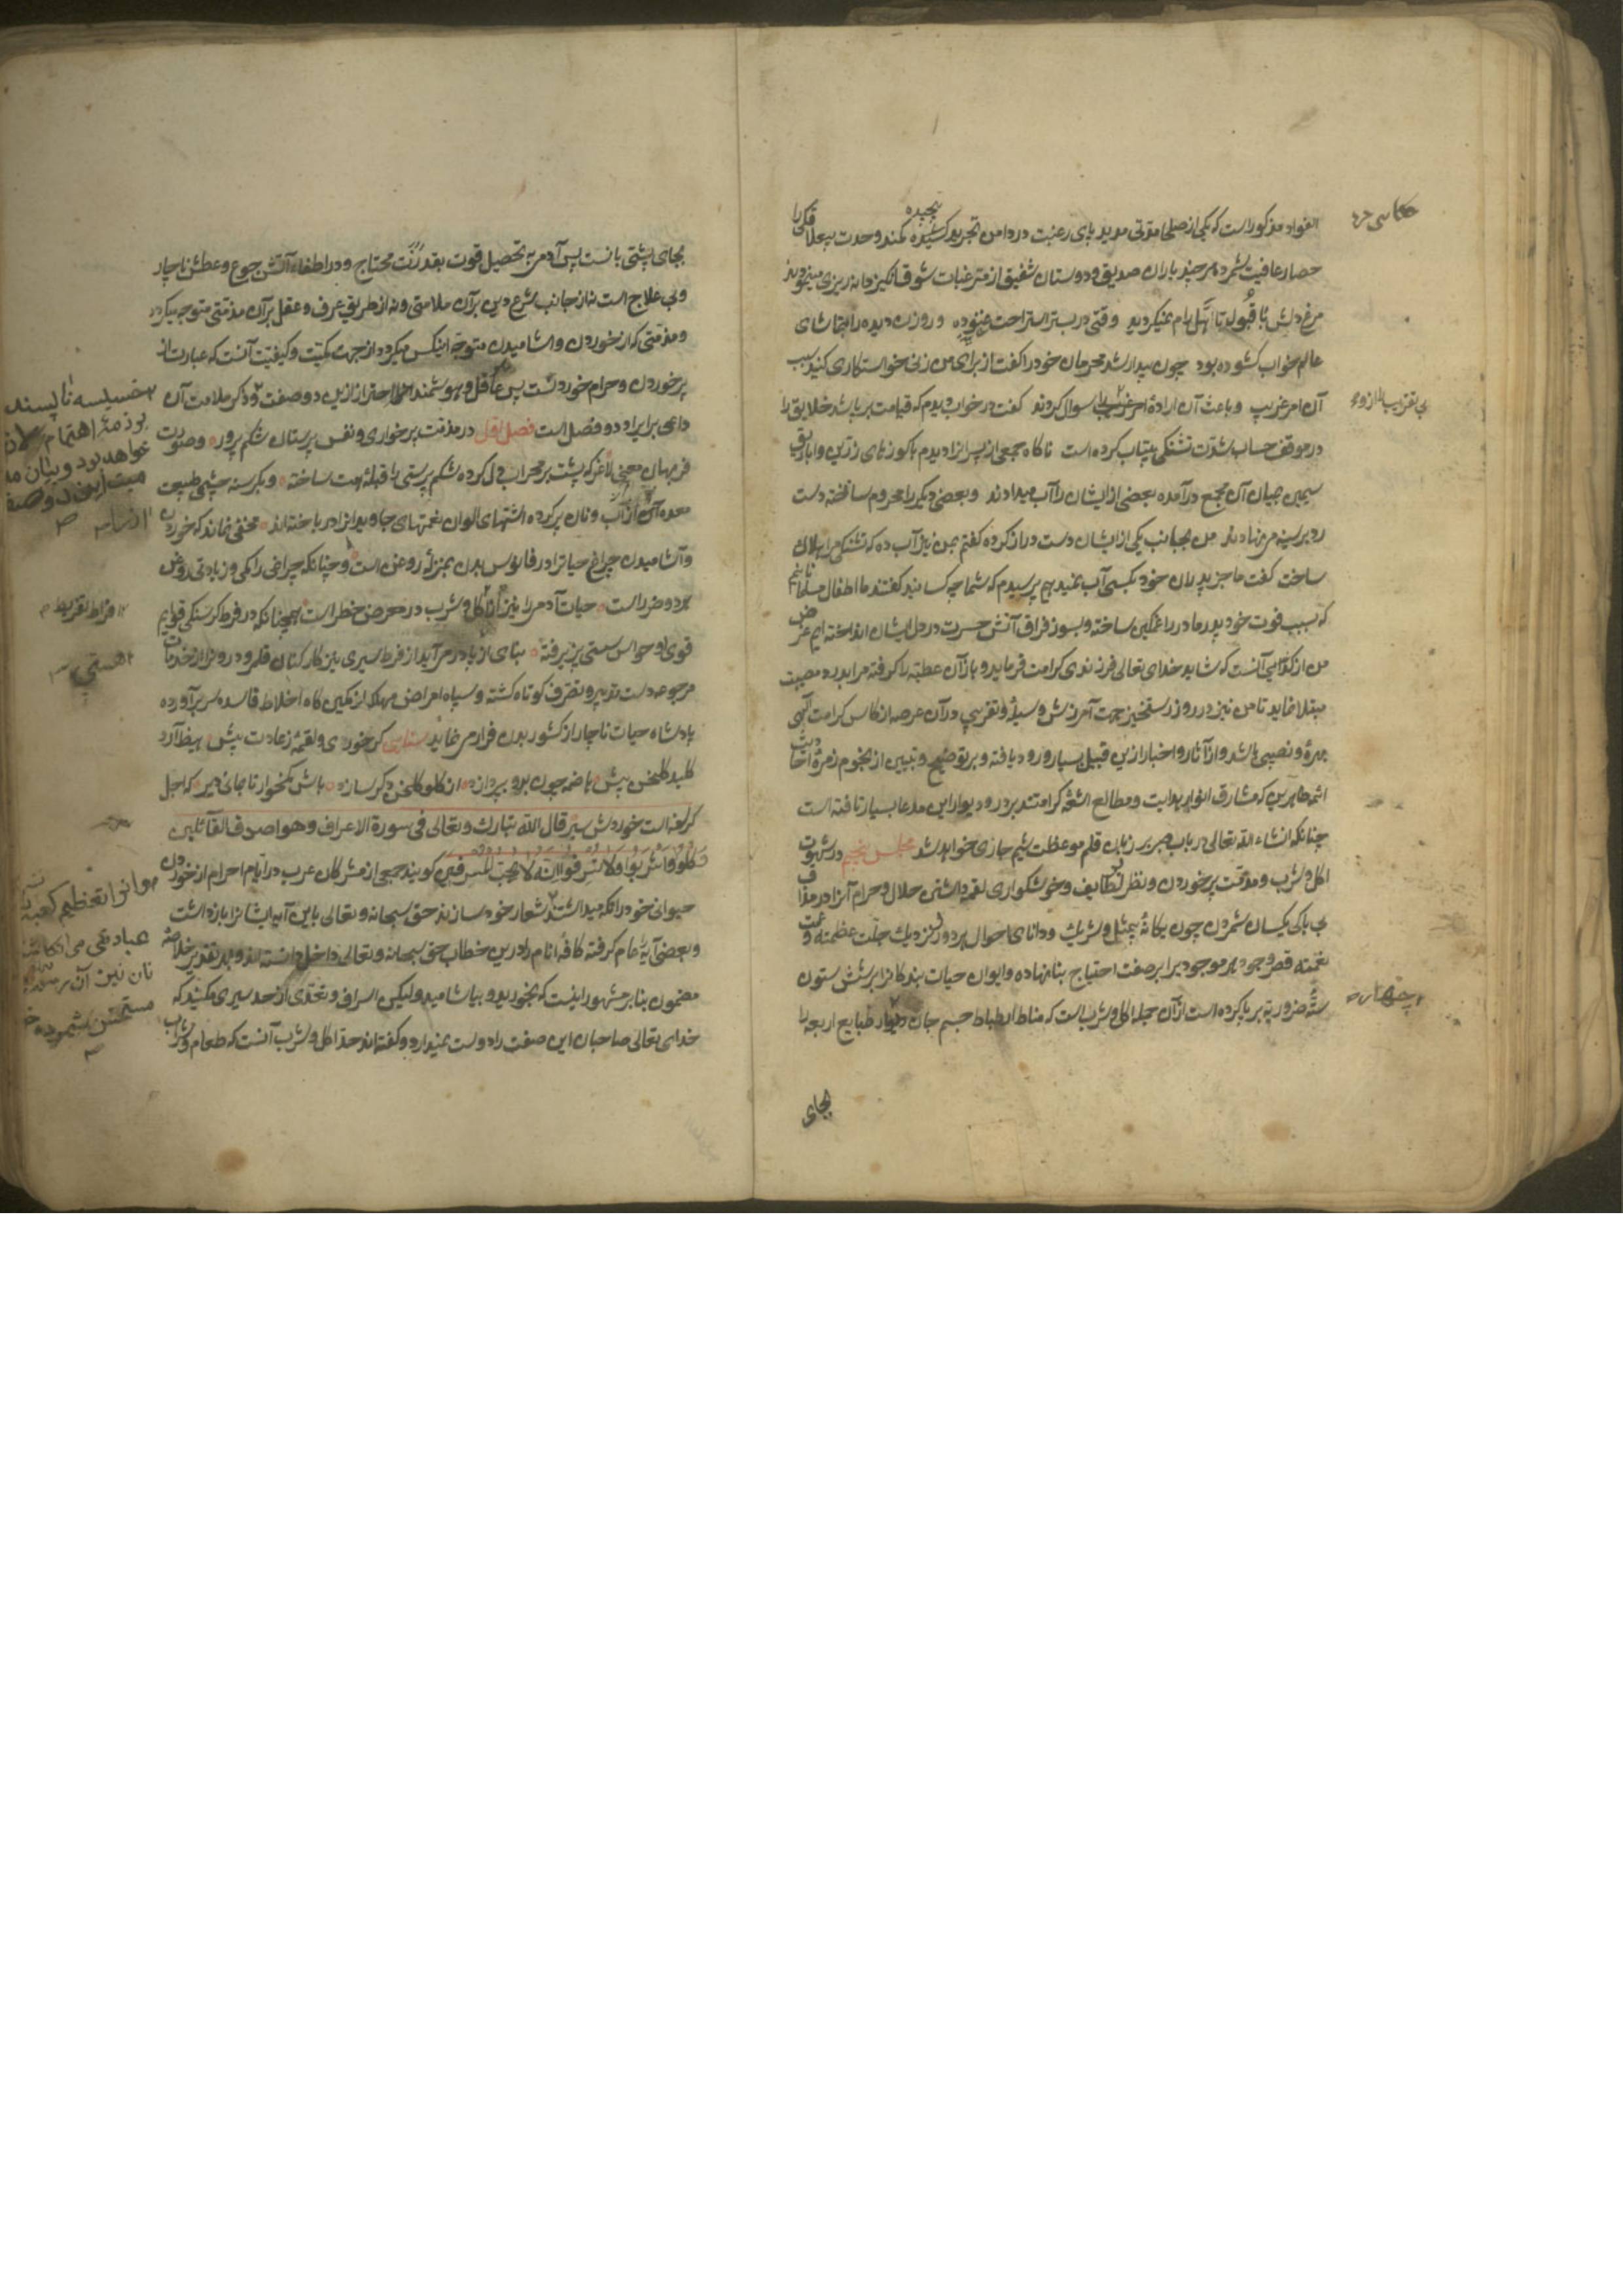 الفواد مذکور است که یکی از صلحا مدتی مدید پای رغبت در دامن تجرید کشیده کمند وحدت
حصار عافیت شمرده هر چند یاران صدیق و دوستان شفیق از مترغبات شوق انگیز دانه ریزی مینمودند
مرغ دلش با قبول تاهل رام نمیکردید وقتی در بستر استراحت غنوده و روزن دیده را بتماشای
عالم خواب کشوده بود چون بیدار شد محرمان خود را گفت از برای من زنی خواستکاری کنید سبب
آن امر غریب و باعث آن اراده سوال کردند کفت در خواب دیدم که قیامت بر پا شد خلایق را
در موقف حساب شدت تشنکی بیتاب کرده است ناکاه جمعی از پسرانرا دیدم با کوزهای زرین و اباریق
سیمین بمیان آن مجمع درآمده بعضی از ایشان را آب میدادند و بعضی دیکر را محروم ساخته دست
رد بر سینه می نهادند من بجانب یکی از ایشان دست دراز کرده کفتم بمن نیز آب ده که تشنکی مرا هلاک
ساخت کفت ما جز پدران خود بکسی آب نمیدهیم پرسیدم که شما چه کسانید کفتند ما اطفال مسلمانانیم
که بسبب فوت خود پدر و مادر را غمکین ساخته و بسوز فراق آتش حسرت در دل ایشان انداخته ایم غرض
من از کدخدایی آنست که شاید خدای تعالی فرزندی کرامت فرماید و باز آن عطیه را کرفته مرا بدرد مصیبت
مبتلا نماید تا من نیز در روز رستخیز جهت آمرزش وسیله و تقریبی در آن عرصه از کاس کرامت الهی
بهره و نصیبی باشد و از آثار و اخبار ازین قبیل بسیار ورود یافته و بر توضیح و تبیین از نجوم زمره احادیث
ائمه طاهرین که مشارق انوار هدایت و مطالع اشعه کرامتند بر در و دیوار این مدعا بسیار تافته است
چنانکه انشاء الله تعالی در باب صبر بر زبان قلم موعظت شیم جاری خواهد شد مجلس پنجم در شهوت
اکل و شرب و مذمت پر خوردن و نظر بر تکالیف و خوشکواری لقمه داشتن حلال و حرام آنرا در مذاق
بی باکی یکسان شمردن چون یکانه بیمثل و شریک و دانای احوال هر دور و نزدیک جلت عظمته و عمت
نعمته قصر وجود هر موجود برابر صفت احتیاج بنا نهاده و ایوان حیات بندکانرا بر شش ستون
سته ضروریه بر پا کرده است از آن جمله اکل و شرب است که مناط ارتباط جسم جان و دیوار طبایع اربعه را
بجای
بجای پشتی بانست پس آدمی به تحصیل قوت بقدر محتاج و در اطفاء آتش جوع و عطش ناچار
و بی علاج است نه از جانب شرع دین بر آن ملامتی و نه از طریق عرف و عقل بر آن مذمتی متوجه میکردد
و مذمتی که از خوردن و آشامیدن متوجه اینکس میکردد از جهت کمیت و کیفیت آنست که عبارت از
پر خوردن و حرام خوردنست پس عاقل و هوشمند را احتراز ازین دو صفت و ذکر ملامت آن
داعی بر ایراد دو فصل است فصل اول در مذمت پر خواری و نفس پرستان شکم پرور و صورت
فربهان معنی لاغر که پشت بر محراب دل کرده شکم پرستی را قبله همت ساخته و بکرسنه چشمی طبیعت
معده از آب و نان پر کرده اشتهای الوان نعمتهای جاوید را در باخته اند مخفی نماند که خوردن
و آشامیدن چراغ حیاترا در فانوس بدن بمنزله روغن است و چنانکه چراغی را کمی و زیادتی روغن
هر دو ضرر است حیات آدمی را نیز اکل و شرب در معرض خطر است همچنانکه در فرط کرسنکی قوایم
قوی و حواس سستی پذیرفته بنای از پا در می آید از فرط سیری نیز کارکنان قلمرو در و نرا از خدمات
مرجوعه دست تدبیر و تصرف کوتاه کشته و سپاه امراض مهلک از مکین کاه اخلاط فاسده سر برآورده
پادشاه حیات ناچار از کشور بدن فرار می نماید سنایی کر خوری و لقمه زعادت بیش
کلید کلخن پیش هاضمه چون بدو بپردازد از کلو کلخن دکر سازد باش کمخوار تا بمانی دیر که اجل
کرسنه است خوردش سیر قال الله تبارک و تعالی فی سورة الاعراف و هو اصدق القائلین
و کلوا واشربوا ولا تسرفوا انه لا یحب المسرفین کویند جمعی از مشرکان عرب در ایام احرام از خوردن
حیوانی خود را نکه میداشتند شعار خود سازند حق سبحانه و تعالی باین آیه ایشانرا باز داشت
و بعضی آیه را عام کرفته کافه انام را درین خطاب حق سبحانه و تعالی داخل دانسته اند و بهر تقدیر خلاصه
مضمون بنا بر مشهور اینست که بخورید و بیاشامید و لیکن اسراف و تعدی از حد سیری مکنید که
خدای تعالی صاحبان این صفت را دوست نمیدارد و کفته اند حد اکل و شرب آنست که طعام و شراب